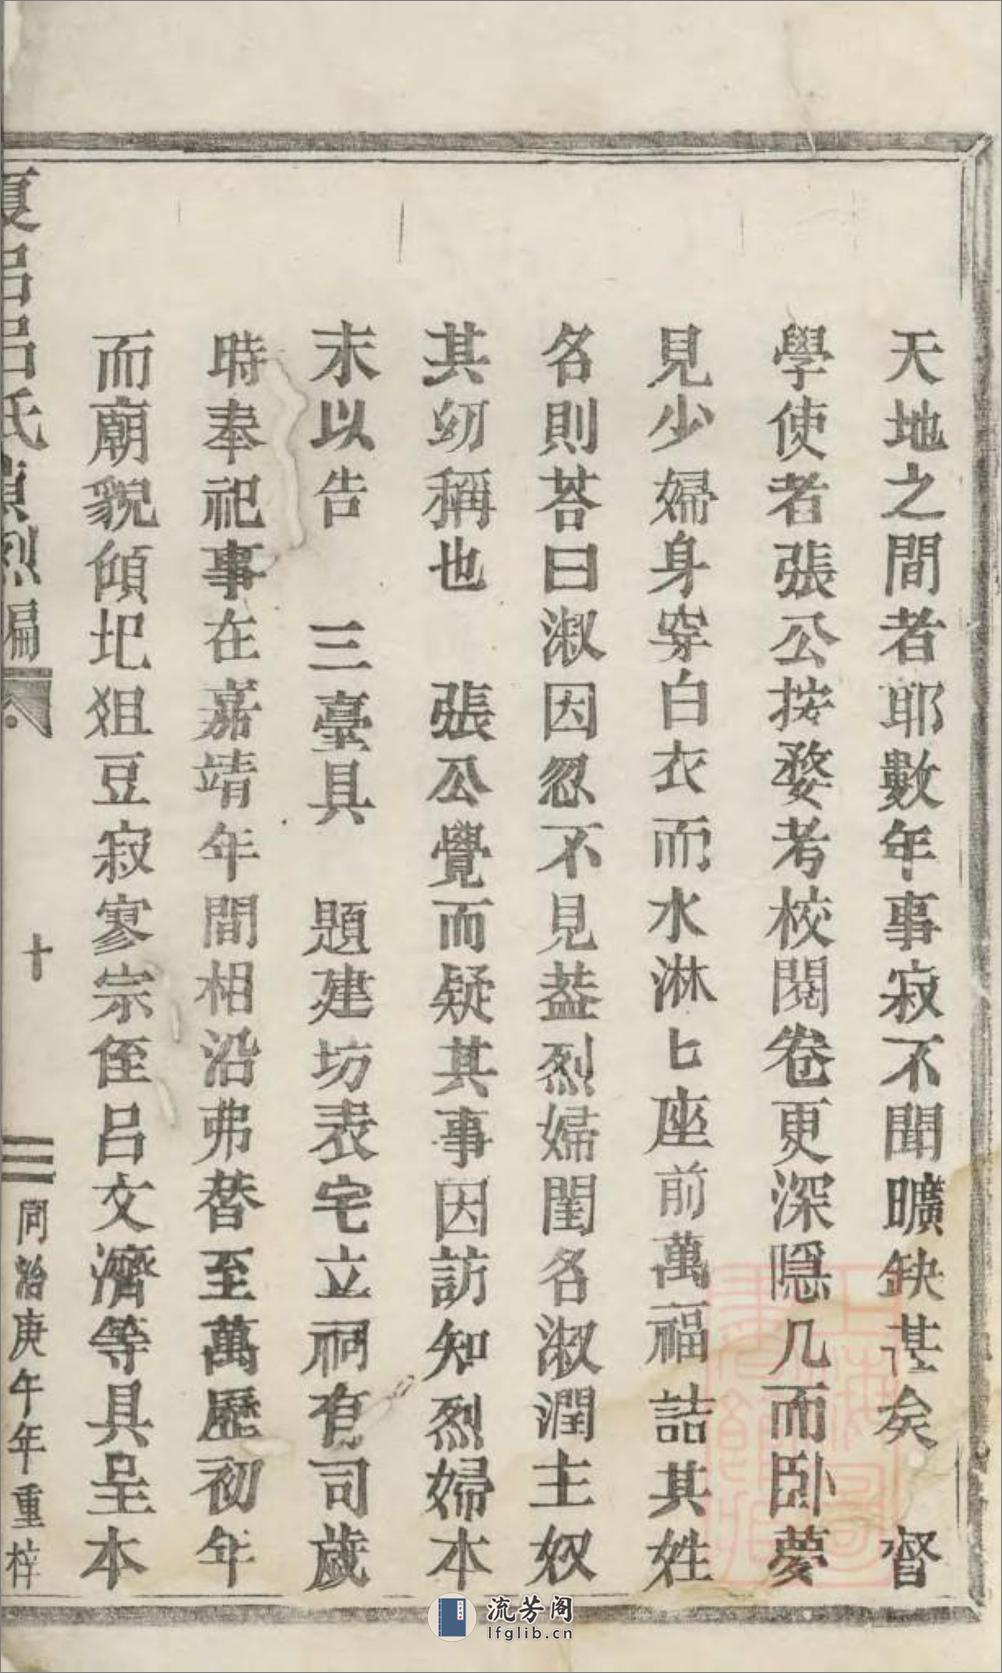 天地之間者耶數年事寂不聞曠缺甚矣　督
學使者張公按婺考校閱卷更深隱几而卧夢
見少婦身穿白衣而水淋匕座前萬福詰其姓
名則荅曰淑因忽不見葢烈婦閨名淑潤主奴
其幼稱也　張公覺而疑其事因訪知烈婦本
末以告　三臺具　題建坊表宅立祠有司歲
時奉祀事在嘉靖年間相沿弗替至萬歷初年
而廟貌傾圯俎豆寂寥宗侄呂文濟等具呈本
呂氏貞烈編
十
同治庚午年重梓
流芳阁
lfglib.cn